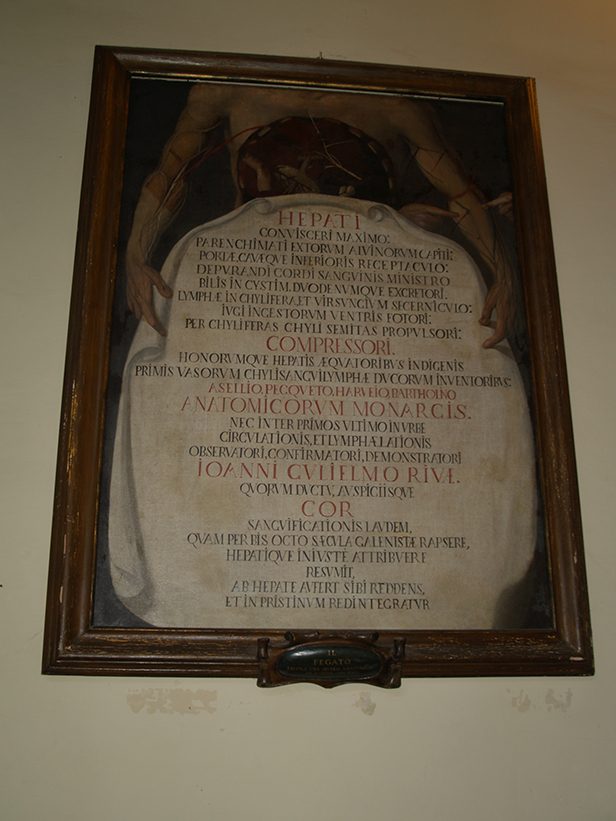 HEPATI
CONVISCERI MAXIMO:
PARENCHIMATI EXTORUM ALVINORVM CAPITI:
PORTÆ, CAVÆQVE INFERIORIS RECEPTACVLO:
DEPVRANDI CORDI SANGVINIS MINISTRO
BILIS IN CYSTIM, DVODENVMQVE EXCRETORI.
LYMPHÆ IN CHYLIFERA, ET VIRSVNGIVM SECERNICVLO:
IVGI INGESTORVM VENTRIS FOTORI:
PER CHYLIFERAS CHYLI SEMITAS PROPVLSORI:
COMPRESSORI.
HONORVMQVE HEPATIS ÆQVATORIBVS INDIGENIS
PRIMIS VASORVM CHYLISANGVILYMPHÆ DVCORVM INVENTORIBVS:
ASELLIO, PECQVETO, HARVEIO, BARTHOLINO
ANATOMICORVM MONARCIS.
NEC INTER PRIMOS VLTIMO IN VRBE
CIRCVLATIONIS, ET LYMPHÆ LATIONIS
OBSERVATORI, CONFIRMATORI, DEMONSTRATORI
IOANNI GVLIELMO RIVÆ.
QVORVM DVCTV, AVSPICIISQVE
COR
SANGVIFICATIONIS LAVDEM,
QVAM PER BIS OCTO SÆCVLA GALENISTÆ RAPSERE,
HEPATIQVE INIVSTE ATTRIBVERE
RESVMIT,
AB HEPATE AVFERT SIBI REDDENS,
ET IN PRISTINVM REDINTEGRATVR
II.
FEGATO